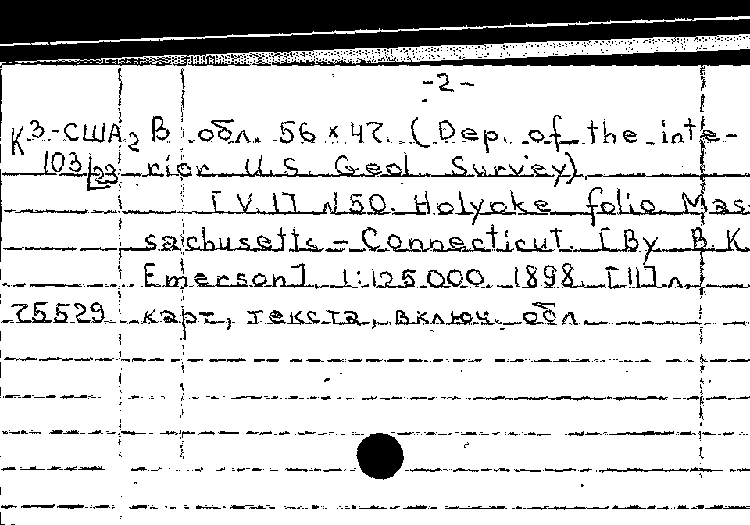 -2-
К3-США2 В обл. 56 × 47. (Dep. of the inte-
103/23 rior U.S. Geol. Survey)
[V.1] N50. Holyoke folio Mas-
sachusetts - Connecticut. [By B.K.
Emerson] 1:125.000. 1898. [11] л.
75529 карт, текста, включ. обл.